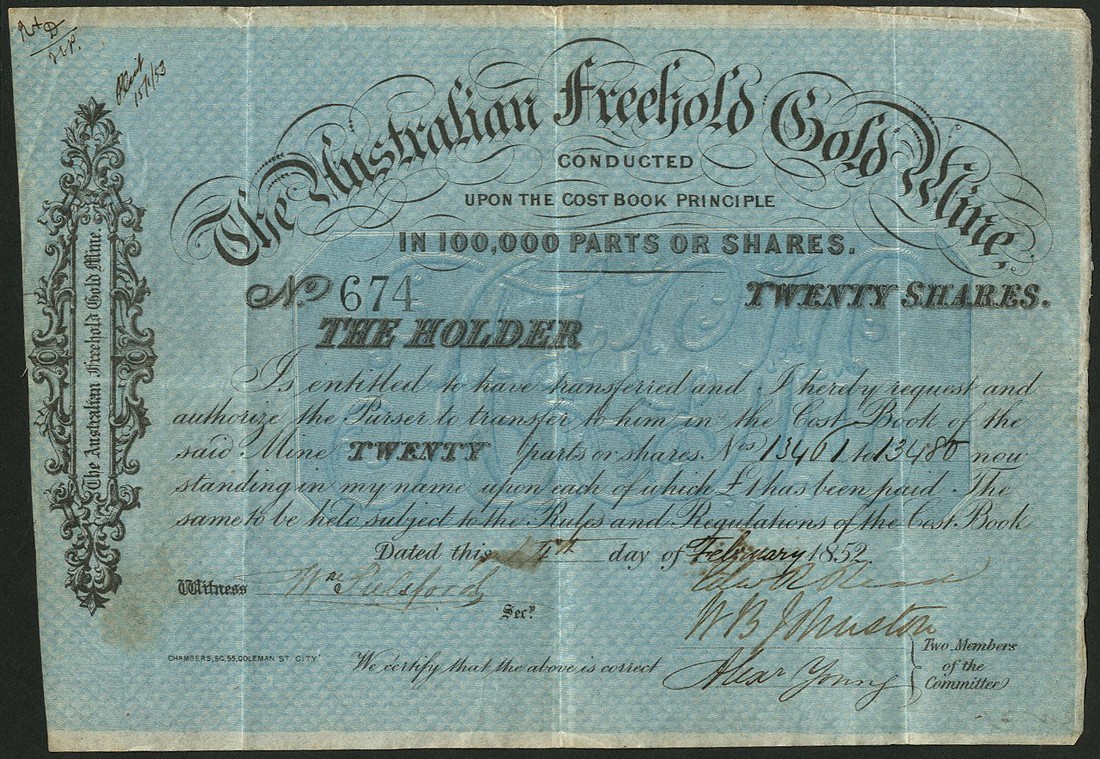 The Australian Freehold Gold Mine,
CONDUCTED
UPON THE COST BOOK PRINCIPLE
IN 100,000 PARTS OR SHARES.
No 674
TWENTY SHARES.
THE HOLDER
Is entitled to have transferred and I hereby request and
authorize the Purser to transfer to him in the Cost Book of the
said Mine TWENTY parts or shares Nos 13461 to 13480 now
standing in my name upon each of which £1 has been paid. The
same to be held subject to the Rules and Regulations of the Cost Book
Dated this 4th day of February 1852
Witness Wm
Secy.
W B Johnston
We certify that the above is correct
Alexr Young
Two Members
of the
Committee
CHAMBERS, 50, 55, COLEMAN ST. CITY
The Australian Freehold Gold Mine.
15/1/53